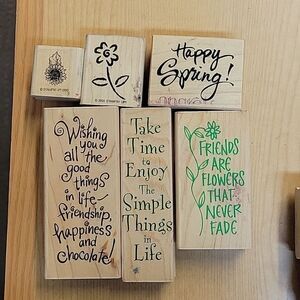 Happy
Spring!
Wishing
you
all the
good
things
in life
friendship,
happiness
and
chocolate!
Take
Time
to
Enjoy
The
Simple
Things
in
Life
FRIENDS
ARE
FLOWERS
THAT
NEVER
FADE